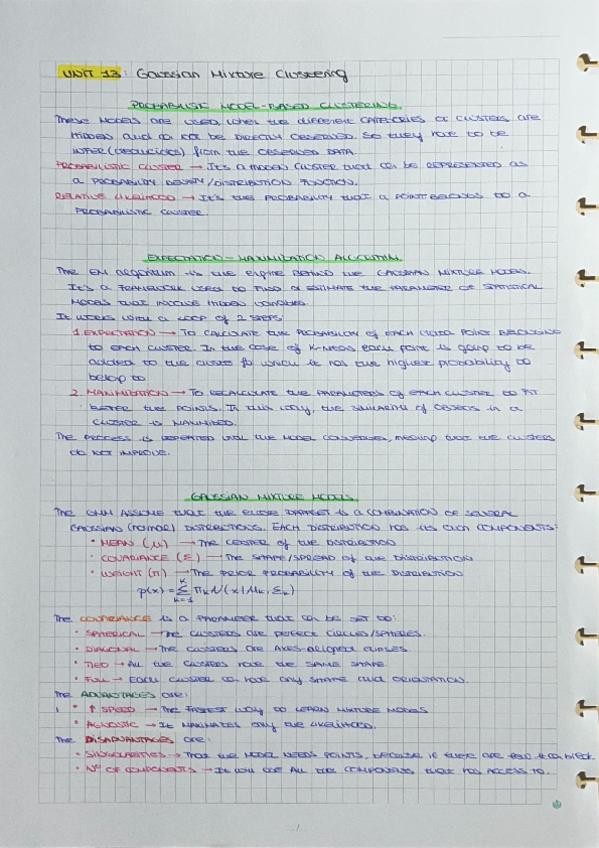 UNIT 13: Gaussian Mixture Clustering
PROBABILISTIC MODEL-BASED CLUSTERING.
These MODELS ARE USED WHEN THE DIFFERENT CATEGORIES or CLUSTERS ARE
HIDDEN and can NOT be DIRECTLY OBSERVED. So they have to be
INFER from the OBSERVED DATA.
PROBABILISTIC CLUSTER → It's a HIDDEN CLUSTER that can be REPRESENTED as
a PROBABILITY DENSITY/DISTRIBUTION FUNCTION.
RELATIVE LIKELIHOOD → It's the PROBABILITY that a POINT BELONGS to a
PROBABILISTIC CLUSTER.
EXPECTATION-MAXIMIZATION ALGORITHM.
The EM algorithm is the engine BEHIND the GAUSSIAN MIXTURE MODEL.
It's a FRAMEWORK USED to FIND or ESTIMATE the PARAMETER OF STATISTICAL
MODELS that INVOLVE HIDDEN VARIABLES.
It works with a LOOP OF 2 STEPS:
1. EXPECTATION → To CALCULATE the PROBABILITY of EACH DATA POINT BELONGING
to EACH CLUSTER. In the case of K-MEANS each point is going to be
added to the cluster for which it has the highest probability to
belong to
2. MAXIMIZATION → To RECALCULATE the PARAMETERS of EACH CLUSTER to FIT
BETTER the POINTS. In this way, the SIMILARITY of OBJECTS IN a
CLUSTER is MAXIMIZED.
The PROCESS is REPEATED UNTIL the MODEL CONVERGES, meaning that the CLUSTERS
do NOT IMPROVE.
GAUSSIAN MIXTURE MODELS.
The GMM ASSUME that the ENTIRE DATASET is a COMBINATION OF SEVERAL
GAUSSIAN (normal) DISTRIBUTIONS. EACH DISTRIBUTION HAS its own COMPONENTS:
• MEAN (μ) → The CENTER OF the DISTRIBUTION
• COVARIANCE (Σ) → The SHAPE/SPREAD OF the DISTRIBUTION
• WEIGHT (π) → The PRIOR PROBABILITY OF the DISTRIBUTION
p(x) = Σ_{k=1}^{K} π_k N(x | μ_k, Σ_k)
The COVARIANCE is a PARAMETER that can be SET to:
• SPHERICAL → The CLUSTERS are PERFECT CIRCLES/SPHERES.
• DIAGONAL → The CLUSTERS are AXES-ALIGNED ELLIPSES.
• TIED → ALL the CLUSTERS HAVE the SAME SHAPE.
• FULL → EACH CLUSTER can HAVE ANY SHAPE and ORIENTATION.
The ADVANTAGES are:
• ↑ SPEED → The FASTEST WAY to LEARN MIXTURE MODELS
• AGNOSTIC → It MAXIMIZES only the LIKELIHOOD.
The DISADVANTAGES are:
• SINGULARITIES → That the MODEL NEEDS POINTS, because if there are few it can
• Nº OF COMPONENTS → It will use ALL the COMPONENTS that HAS ACCESS to.